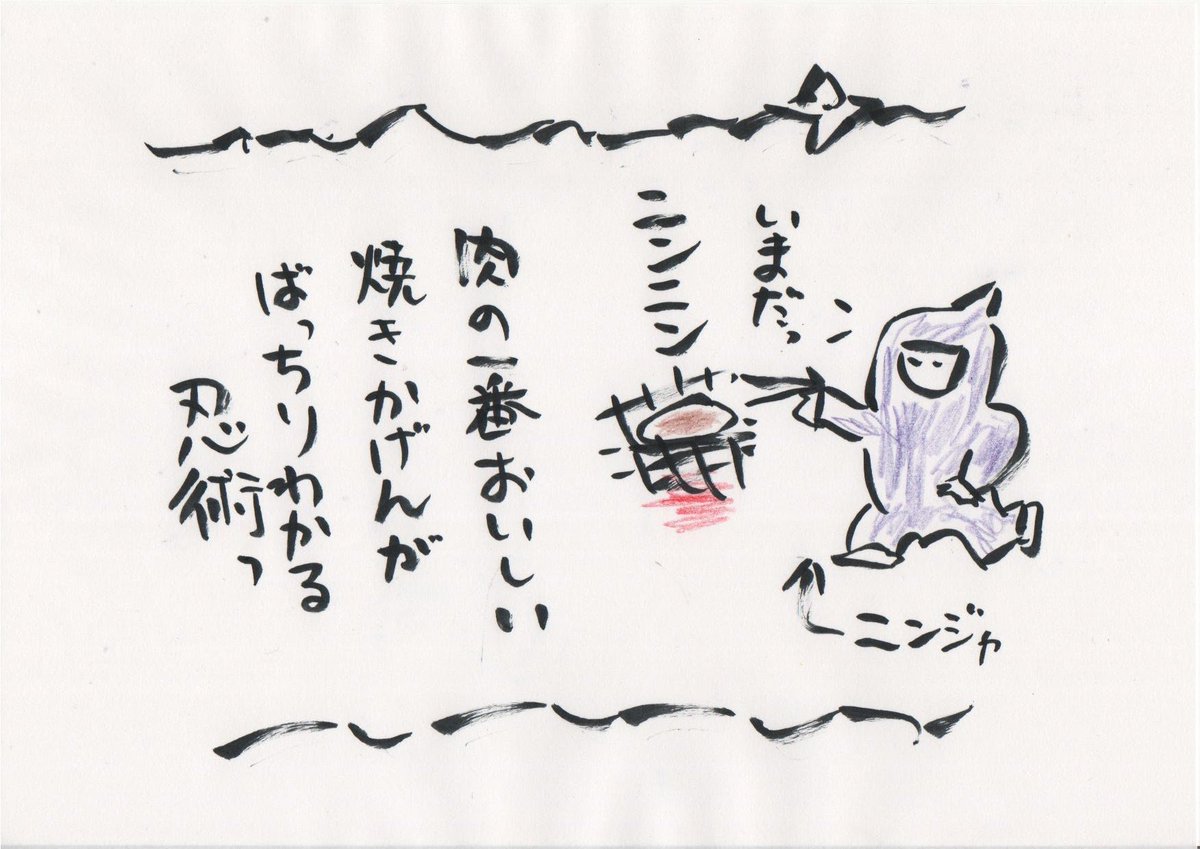 いまだっ
ニンニン
肉の一番おいしい
焼きかげんが
ばっちりわかる
忍術っ
ニンジャ